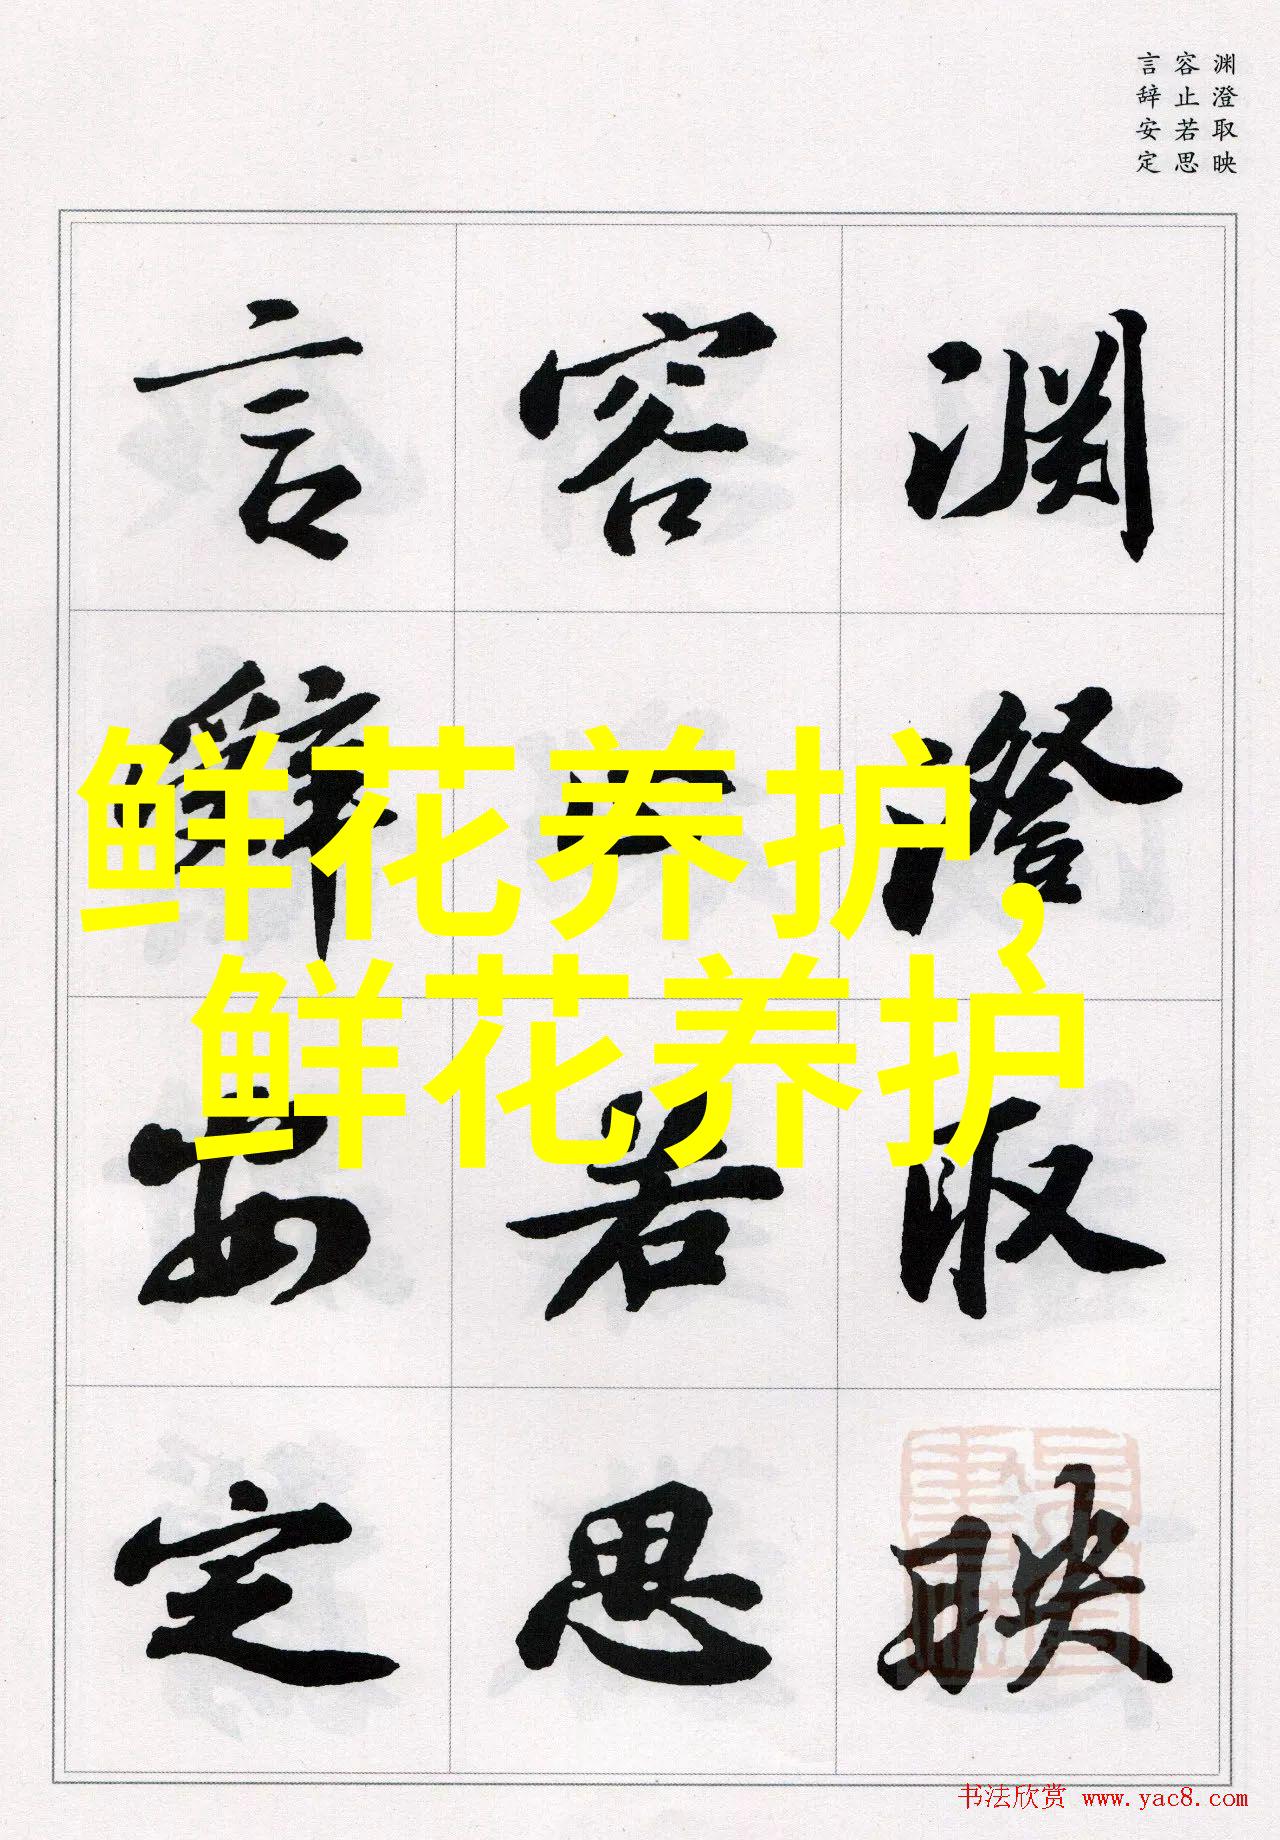 渊澄取映
容止若思
言辞安定
渊澄取映
容止若思
言辞安定
鲜花养护，
鲜花养护
书法欣赏 www.yac8.com